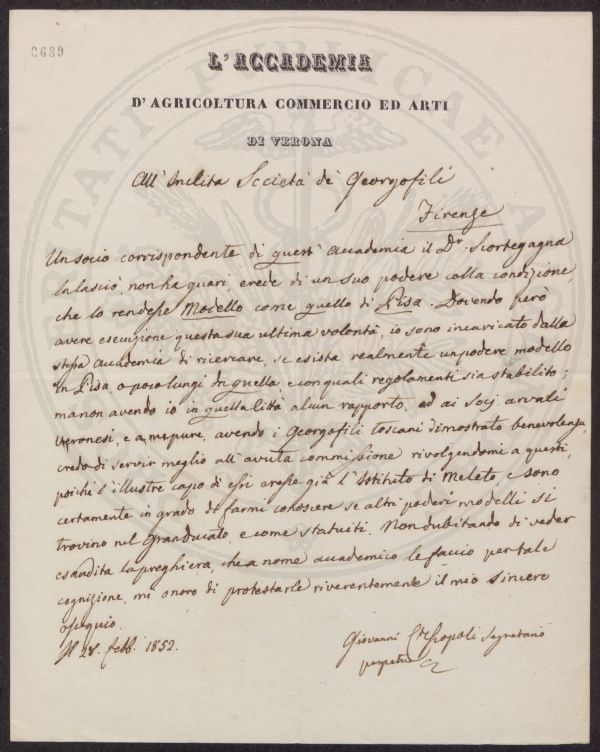 2689
L'ACCADEMIA
D'AGRICOLTURA COMMERCIO ED ARTI
DI VERONA
All' Inclita Società de' Georgofili
Firenze
Un socio corrispondente di quest' Accademia il Dr. Scortegagna
la lasciò, non ha guari, erede di un suo podere colla condizione,
che lo rendesse Modello come quello di Pisa. Dovendo però
avere esecuzione questa sua ultima volontà, io sono incaricato dalla
stessa Accademia di ricercare, se esista realmente un podere modello
in Pisa, o poco lungi da quella, e con quali regolamenti sia stabilito;
ma non avendo io in quella Città alcun rapporto, ed ai Socj arvali
Veronesi, e a me pure, avendo i Georgofili toscani dimostrato benevolenza,
credo di servir meglio all' avuta commissione rivolgendomi a questi,
poichè l'illustre capo di essi eresse già l'Istituto di Meleto, e sono
certamente in grado di farmi conoscere se altri poderi modelli si
trovino nel Granducato, e come statuiti. Non dubitando di veder
esaudita la preghiera, che a nome accademico le faccio per tale
cognizione, mi onoro di protestarle riverentemente il mio sincero
ossequio.
Il 28. febb. 1852.
Giovanni Segretario
perpetuo